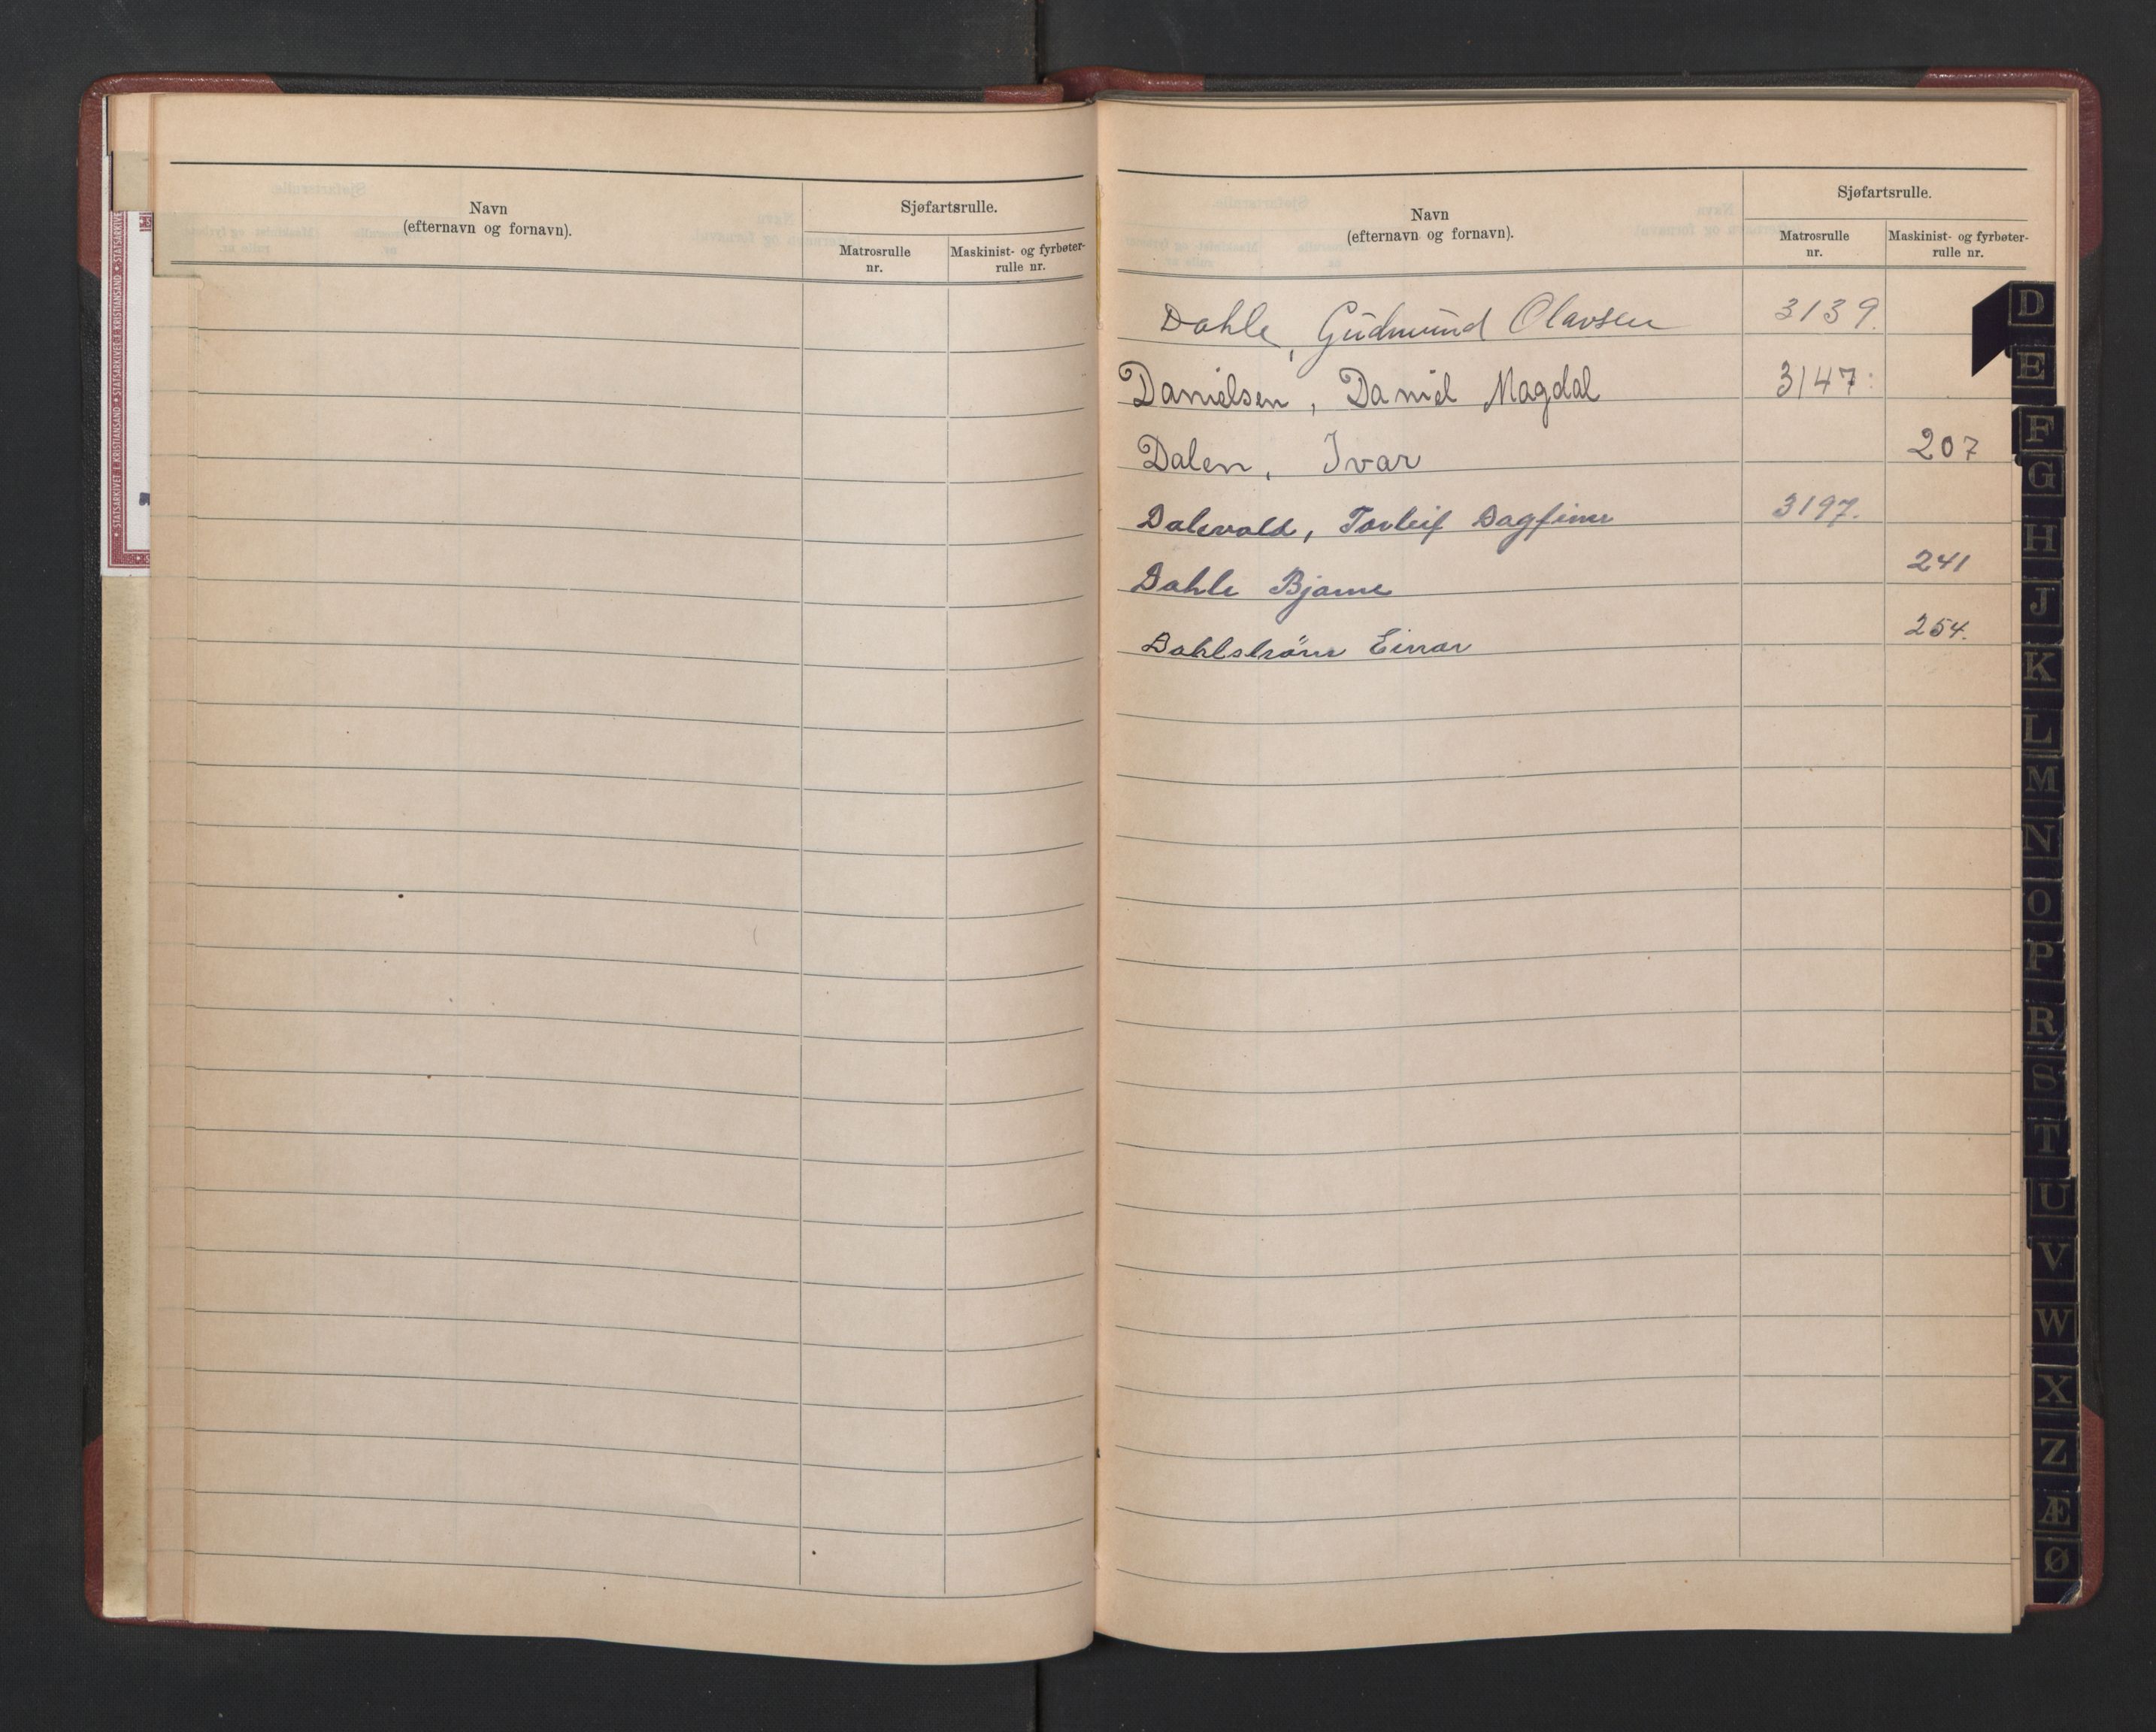 Navn
(efternavn og fornavn).
Sjøfartsrulle.
Matrosrulle
nr.
Maskinist- og fyrbøter-
rulle nr.
STATSARKIVET I KRISTIANSAND • STATSARKIVET I KRISTIANSAND • STATSARKIVET
Navn
(efternavn og fornavn).
Sjøfartsrulle.
Matrosrulle
nr.
Maskinist- og fyrbøter-
rulle nr.
Dahle, Gudmund Olavsen 3139.
Danielsen, Daniel Magdal 3147.
Dalen, Ivar 207
Dalevold, Torleif Dagfinn 3197.
Dahle Bjarne 241
Dahlström Einar 254.
D
E
F
G
H
J
K
L
M
N
O
P
R
S
T
U
V
W
X
Z
Æ
Ø